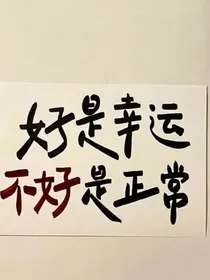 好是幸运
不好是正常